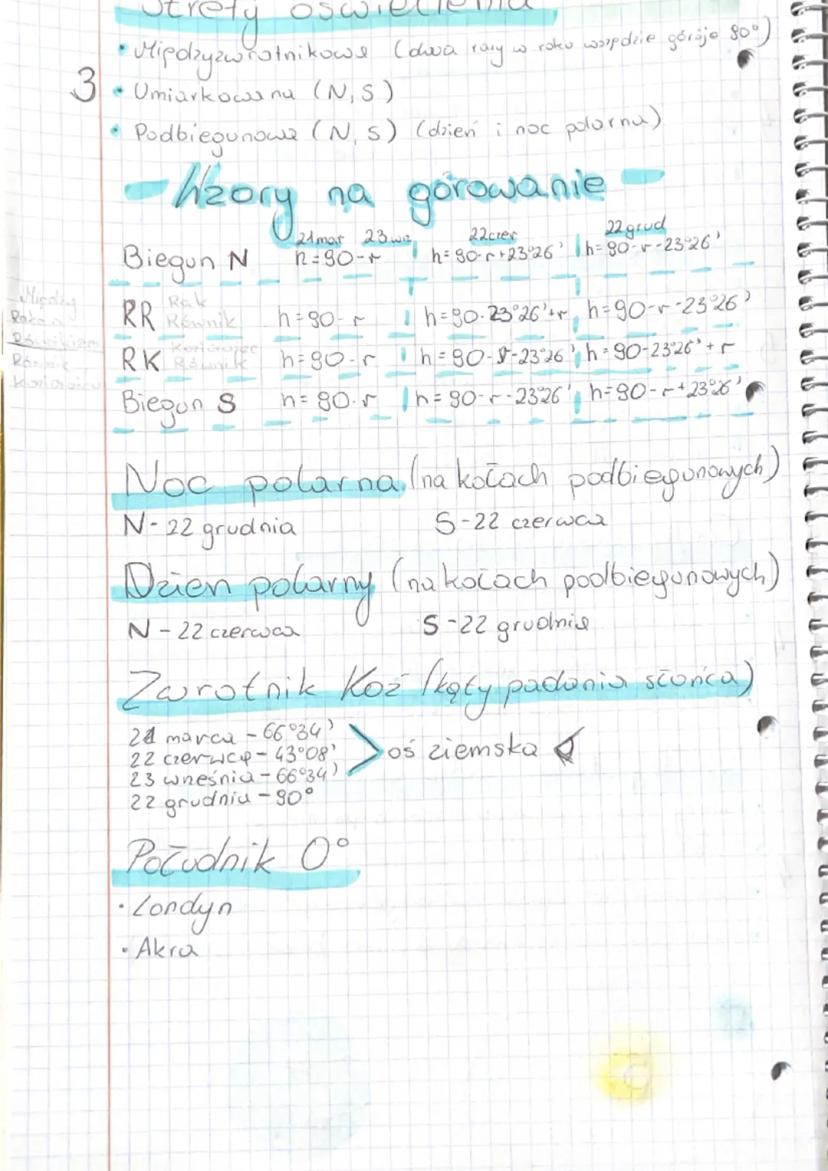 Strefy oświetlenia
• Międzyzwrotnikowe (dwa razy w roku wszędzie góruje 90°)
3 • Umiarkowana (N, S)
• Podbiegunowa (N, S) (dzień i noc polarna)
- Wzory na górowanie -
21mar 23wrz 22czer 22grud
Biegun N h=90-r h=90-r+23°26' h=90-r-23°26'
RR Rak Równik h=90-r h=90-23°26'+r h=90-r-23°26'
RK Koziorożec Równik h=90-r h=90-r-23°26' h=90-23°26'+r
Biegun S h=90-r h=90-r-23°26' h=90-r+23°26'
Między
Równikiem
Równik
Noc polarna (na kołach podbiegunowych)
N-22 grudnia S-22 czerwca
Dzień polarny (na kołach podbiegunowych)
N-22 czerwca S-22 grudnia
Zwrotnik Koź (kąty padania słońca)
21 marca - 66°34'
22 czerwca - 43°08' > oś ziemska
23 września - 66°34'
22 grudnia - 90°
Południk 0°
• Londyn
• Akra